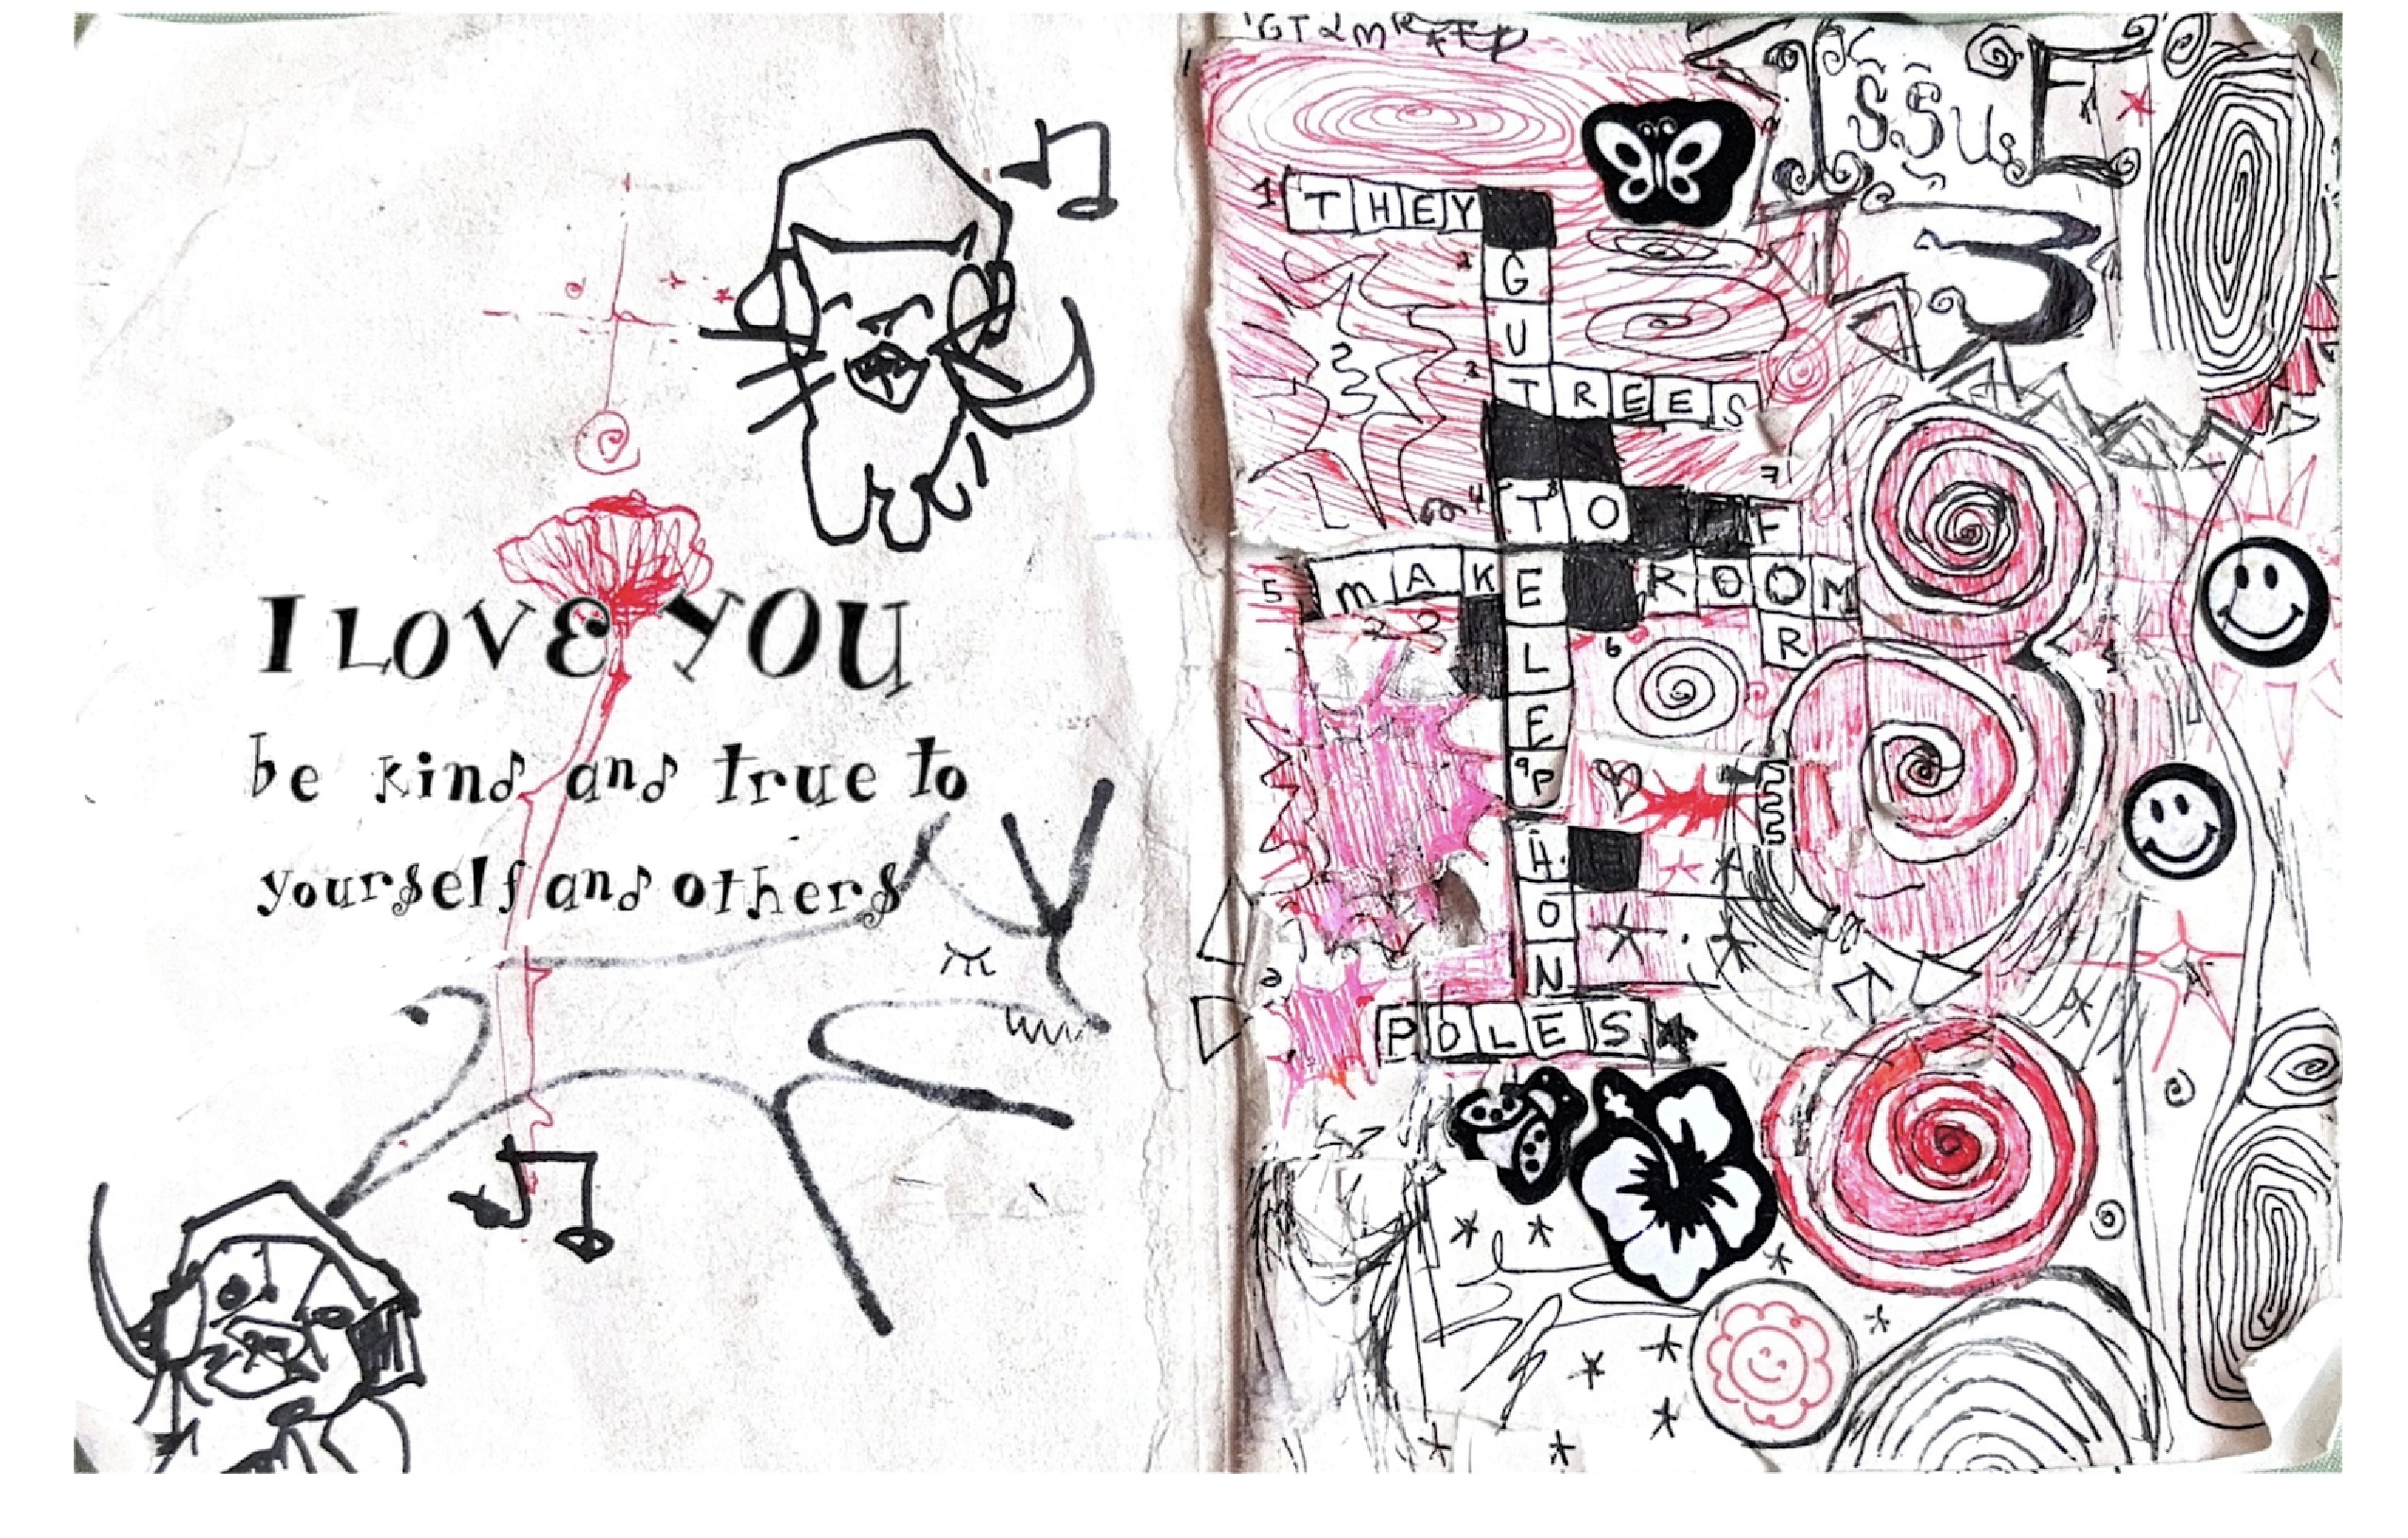 I LOVE YOU
be kind and true to
yourself and others
ISSUE
3
1 THEY
GUT
TREES
TO
5 MAKE ROOM
FOR
TELEPHON
POLES